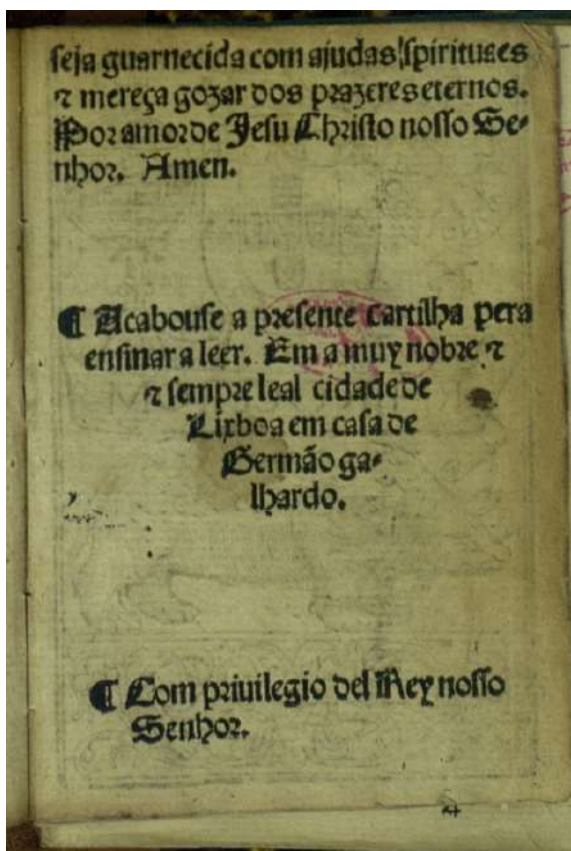 seja guarnecida com ajudas spirituaes
⁊ mereça gozar dos prazeres eternos.
Por amor de Jesu Christo nosso Se-
nhor. Amen.
¶ Acabouse a presente cartilha pera
ensinar a leer. Em a muy nobre ⁊
⁊ sempre leal cidade de
Lixboa em casa de
Germão ga-
lhardo.
¶ Com priuilegio del Rey nosso
Senhor.